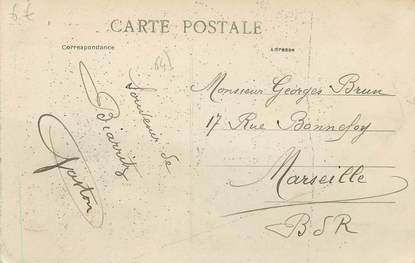 CARTE POSTALE
Correspondance
Adresse
Souvenir de
Biarritz
Gaston
Monsieur Georges Brun
17 Rue Bonnefoy
Marseille
B d R